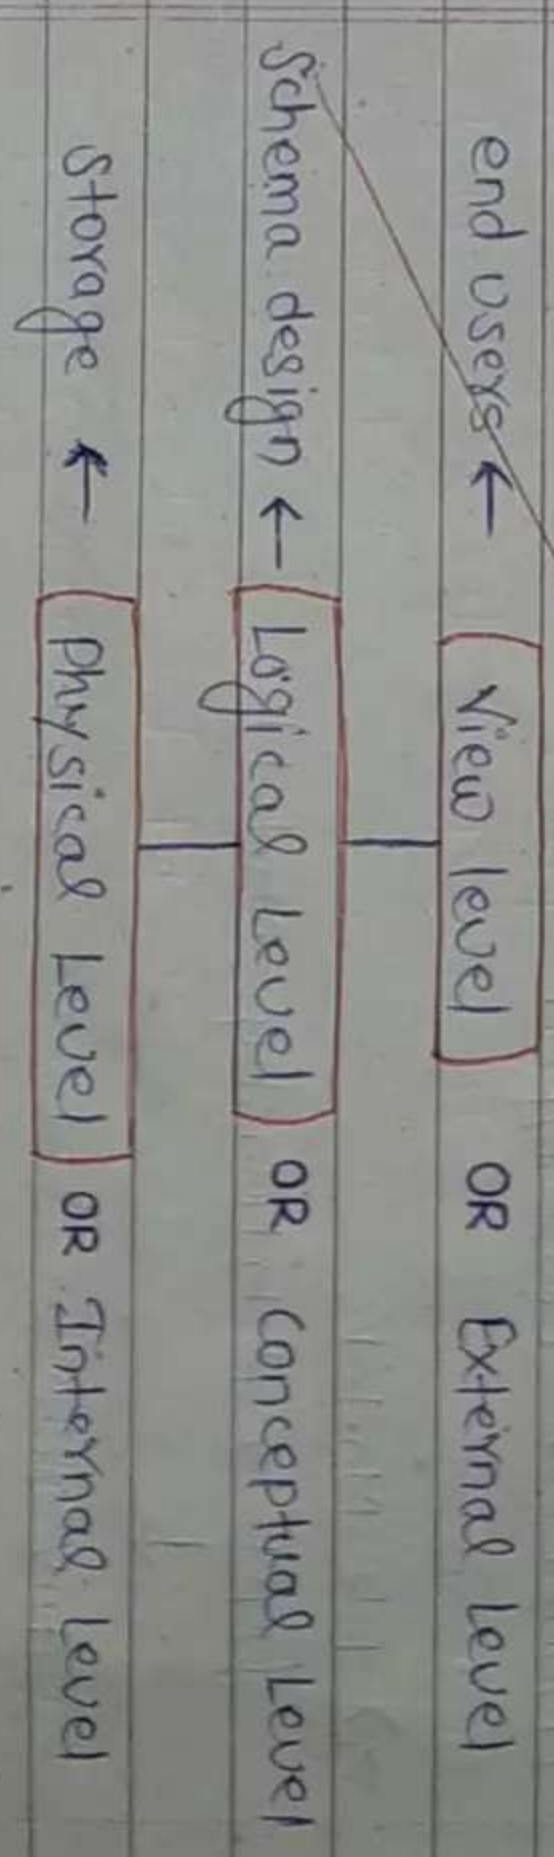 end users ← View level OR External Level
Schema design ← Logical Level OR Conceptual Level
Storage ← Physical Level OR Internal Level